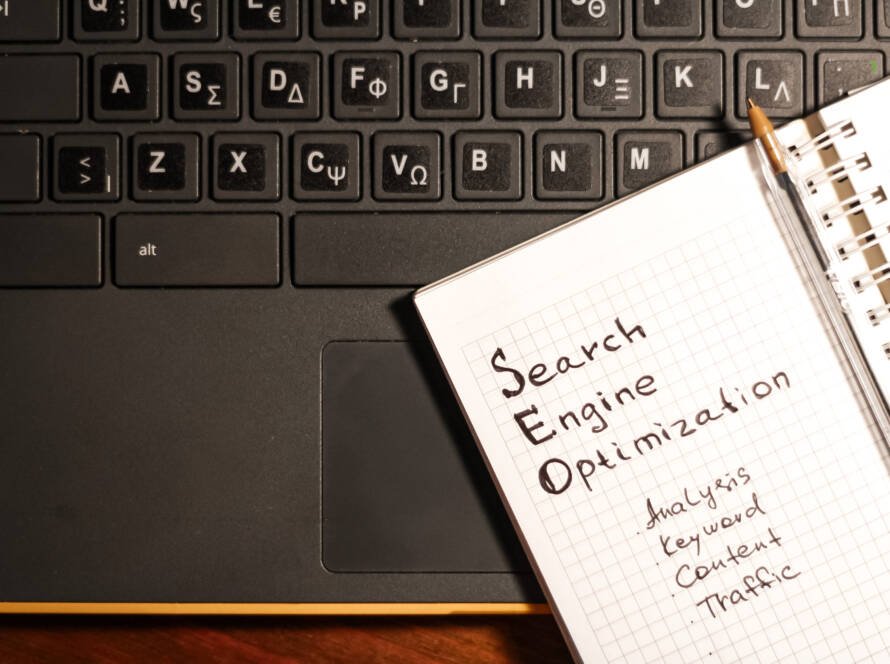 Q ;
W ς
E €
A
S Σ
D Δ
F Φ
G Γ
H
J Ξ
K
L Λ
< >
Z
X
C Ψ
V Ω
B
N
M
alt
Search
Engine
Optimization
. Analysis
. Keyword
. Content
. Traffic